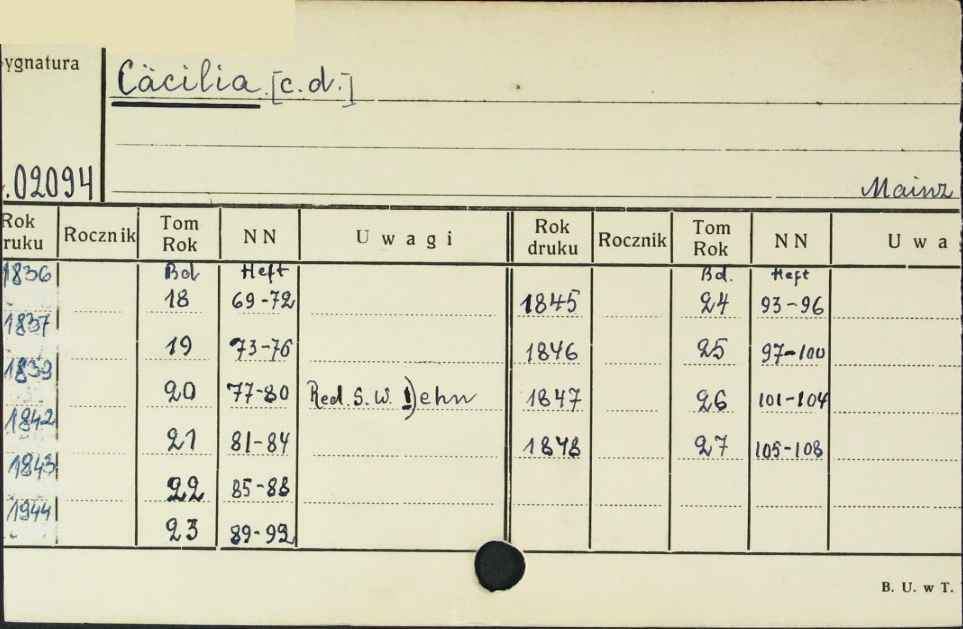 ygnatura
Cäcilia. [c.d.]
.02094
Mainz
Rok Rocznik Tom NN Uwagi Rok Rocznik Tom NN Uwa
ruku Rok druku Rok
1836 Bd Heft Bd. Heft
18 69-72 1845 24 93-96
1837
19 73-76 1846 25 97-100
1839
20 77-80 Red. S. W. Dehn 1847 26 101-104
1842
21 81-84 1848 27 105-108
1843
22 85-88
1944
23 89-92
B. U. w T.